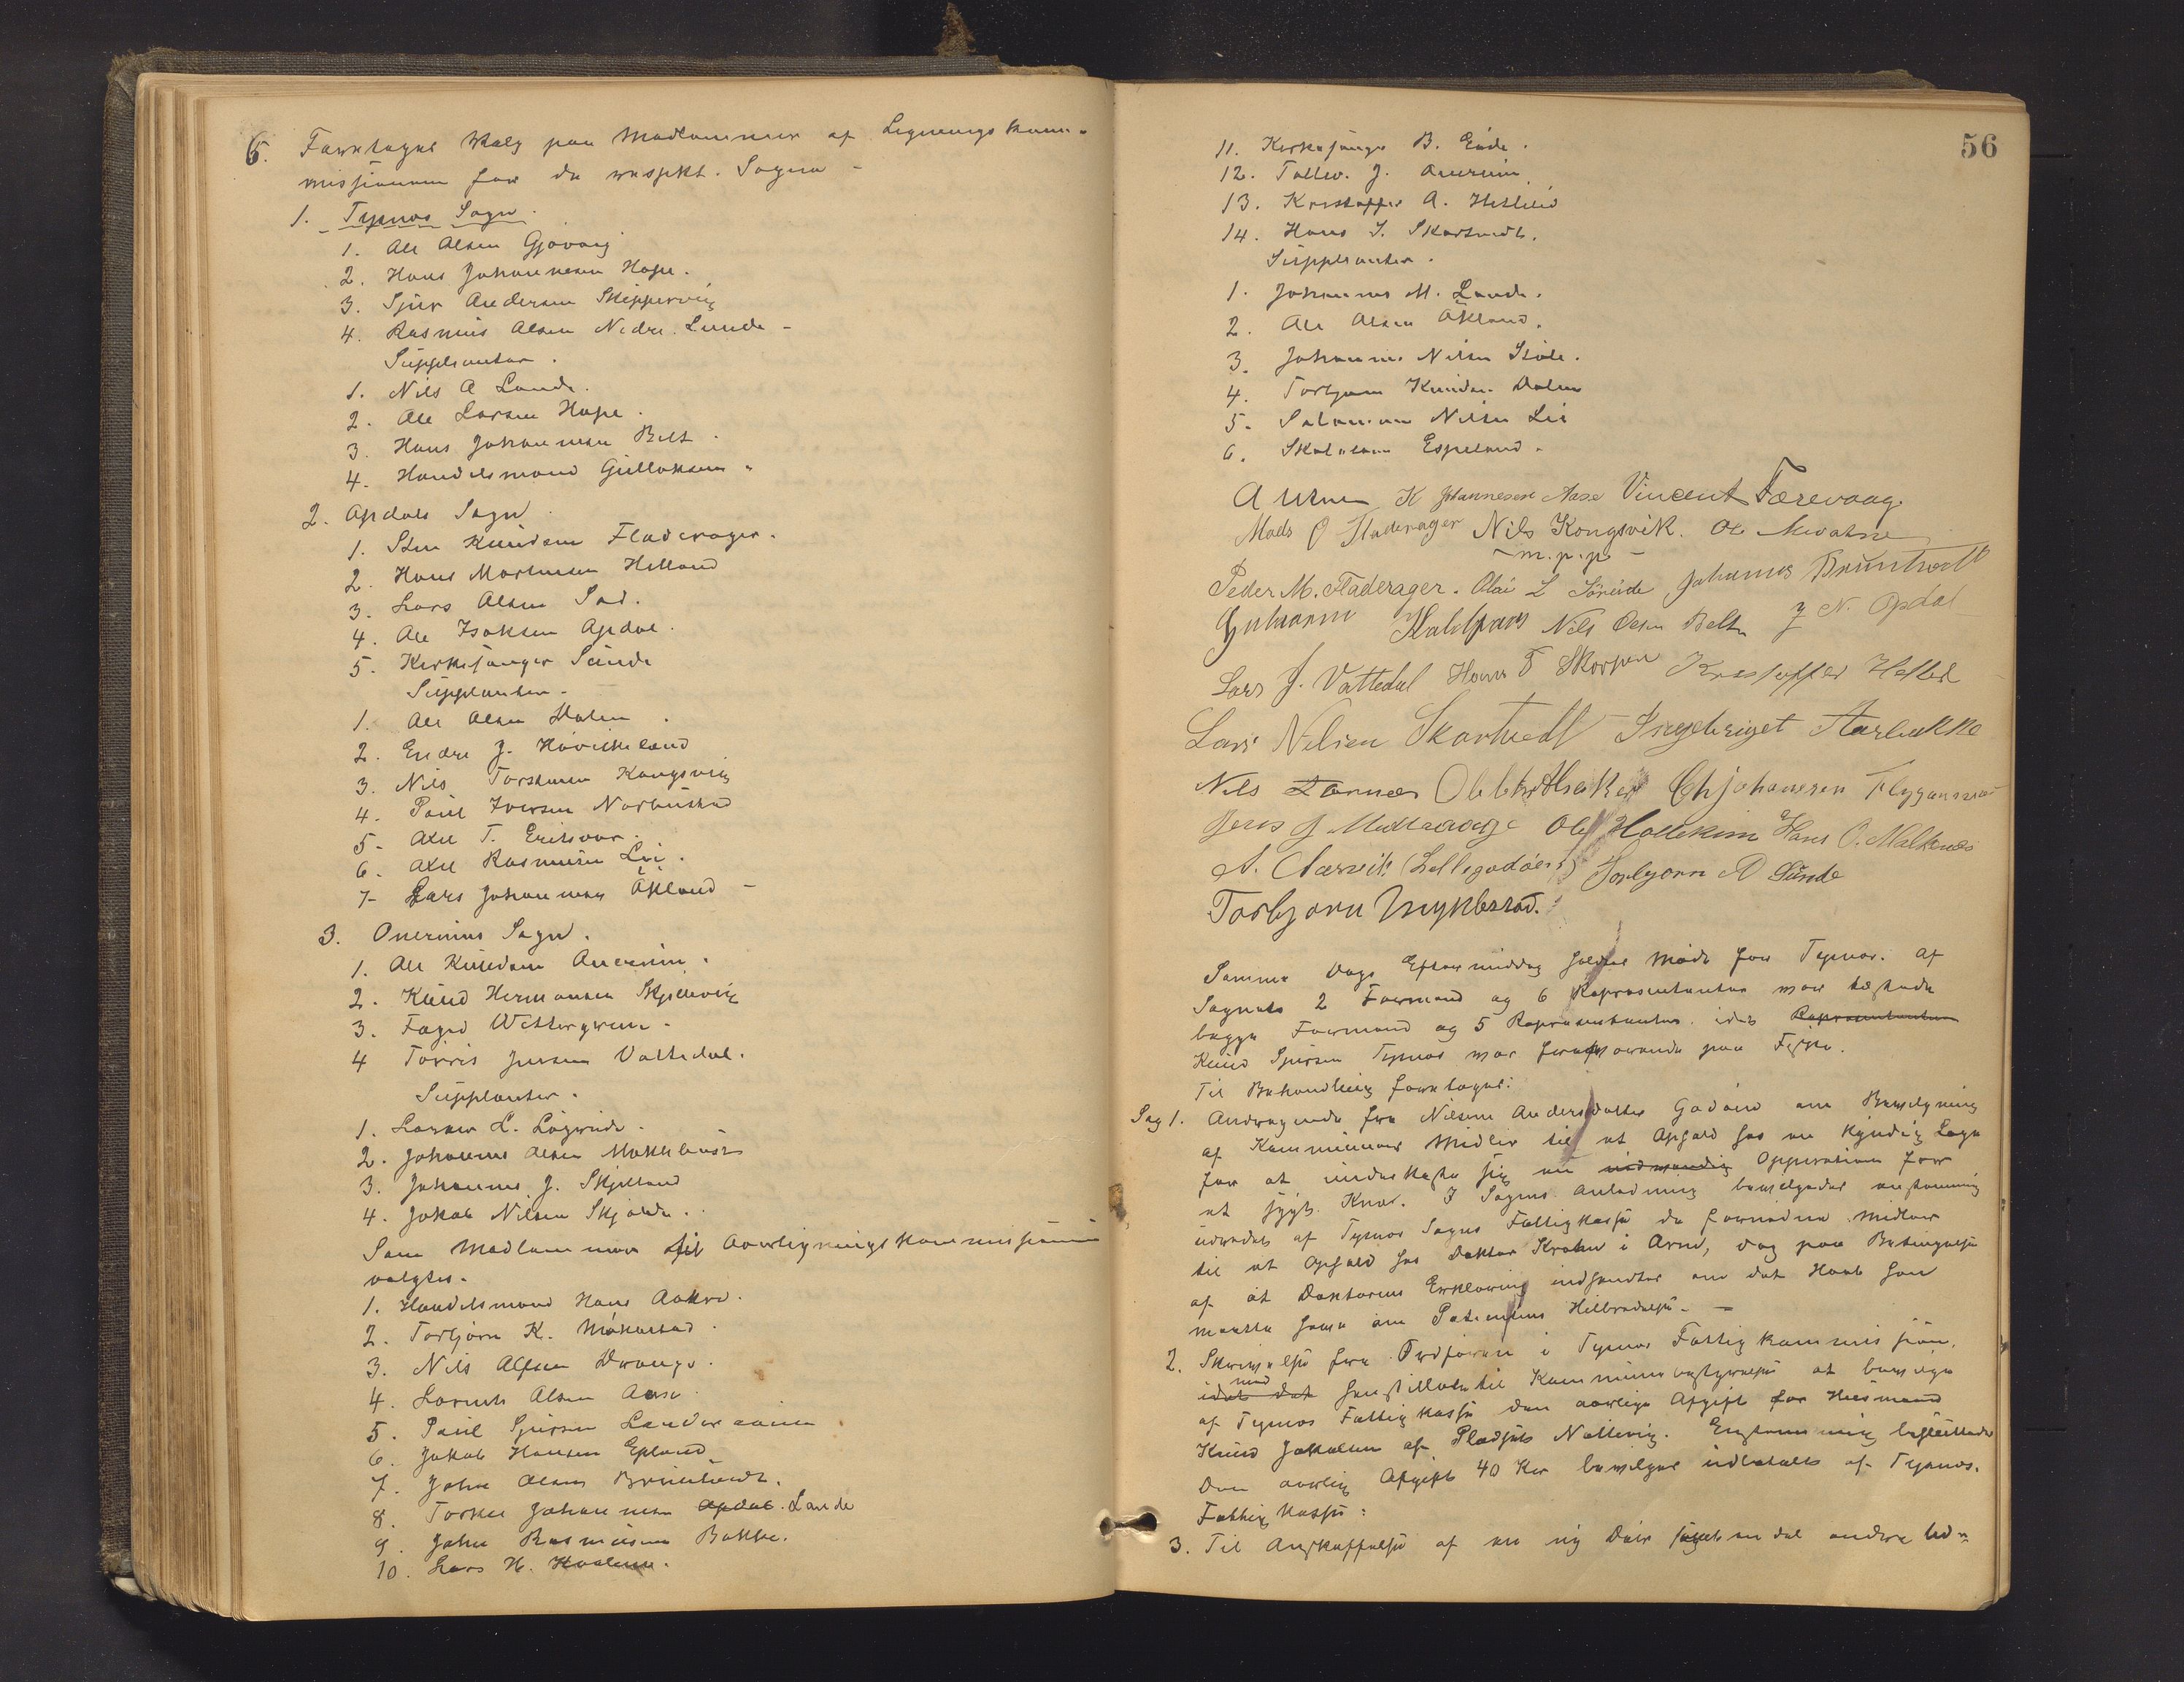 6. Foretages Valg paa Medlemmer af Ligningskom-
missionen for de respekt. Sogne -
1. Tysnes Sogn.
1. Ole Olsen Gjövaag
2. Hans Johannesen Hope.
3. Sjur Andersen Skippervig
4. Rasmus Olsen Nedre Lunde -
Suppleanter.
1. Nils A Lande.
2. Ole Larsen Hope.
3. Hans Johannesen Belt.
4. Handelsmand Gullaksen.
2. Opdals Sogn.
1. Sten Knudsen Fladerager.
2. Hans Mortensen Helland
3. Lars Olsen
4. Ole Isaksen Opdal.
5. Kirkesanger Sunde
Supplanter.
1. Ole Olsen Dalen.
2. Endre J. Hövikeland
3. Nils Torstensen Kongsvig
4. Paul Iversen Norbustad
5. Axel T. Eriksson.
6. Axel Rasmusen Lie.
7- Lars Johannesen Økland -
3. Onerims Sogn.
1. Ole Knudsen Onerim.
2. Knud Hermansen Skjellevig
3. Foged Wettergreen.
4 Torris Jensen Vattedal.
Supplanter.
1. L. Lögreide.
2. Johannes Olsen Maklebust
3. Johannes J. Skjelland
4. Jakob Nilsen Skjolde.
Som Medlemmer til Overligningskommissionen
valgtes.
1. Handelsmand Hans Aakre.
2. Torbjörn K. Mökestad.
3. Nils Drange.
4. Olsen Aase.
5. Paul Sjursen
6. Jakob Hansen Epland
7. John Olsen Bruntveit.
8. Torkel Johannesen Opdal. Lande
9. John Rasmusen Bakke.
10. Lars H. Hvalene.
56
11. Kirkesanger B. Eide.
12. Tollev. J. Onerim
13. Kristoffer A. Hetleid
14. Hans J. Skartvedt.
Supplanter.
1. Johannes M. Lande.
2. Ole Olsen Økland.
3. Johannes Nilsen Stöle.
4. Torbjörn Knudsen Dalen
5. Salamon Nilsen Lie
6. Skolelærer Espeland.
K Johannesen Aase Vincent Færevaag.
Mads O Fladerager Nils Kongsvik. Ole
m. p. p.
Peder M. Fladerager. Olai L Söreide Johannes Bruntvedt
Nils Olsen Belt J N. Opdal
Lars J. Vattedal Hans T Skorpen Kristoffer Hetled
Lars Nilsen Skartvedt Ingebrigt Starbakke
Nils Ch Johanesen Flygansvær
Jens J Ole Hollekim Hans O. Malkenes
N. Nærvik (Lillegodöen) Torbjörn A Sunde
Torbjorn Myklestad.
Samme Dags Eftermiddag holdtes Møde for Tysnes. Af
Sognets 2 Formænd og 6 Repræsentanter var tilstede
begge Formænd og 5 Repræsentanter. idet Repræsentanten
Knud Sjursen Tysnes var fraværende paa Fiske.
Til Behandling foretages:
Sag 1. Andragende fra Nilsine Andersdatter Godöen om Bevilgning
af Kommunens Midler til et Ophold hos en kyndig Læge
for at underkaste sig en nødvendig Opperation for
et sygt Knæ. I Sagens Anledning bevilgedes enstemmig
udredet af Tysnes Sogns Fattigkasse de fornødne Midler
til et Ophold hos Doktor Krohn i Arne, dog paa Betingelse
af at Doktorens Erklæring indhentes om det Haab han
maatte have om Patientens Helbredelse. -
2. Skrivelse fra Ordføreren i Tysnes Fattigkommission,
med
idet det henstilles til Kommunebestyrelsen at bevilge
af Tysnes Fattigkasse den aarlige Afgift for Husmand
Knud Jakobsen af Pladsen Nattevig. Enstemmig besluttedes
Den aarlig Afgift 40 Kr bevilges udbetalt af Tysnes.
Fattigkasse:
3. Til Anskaffelse af en ny Dør samt en del andre Ud-